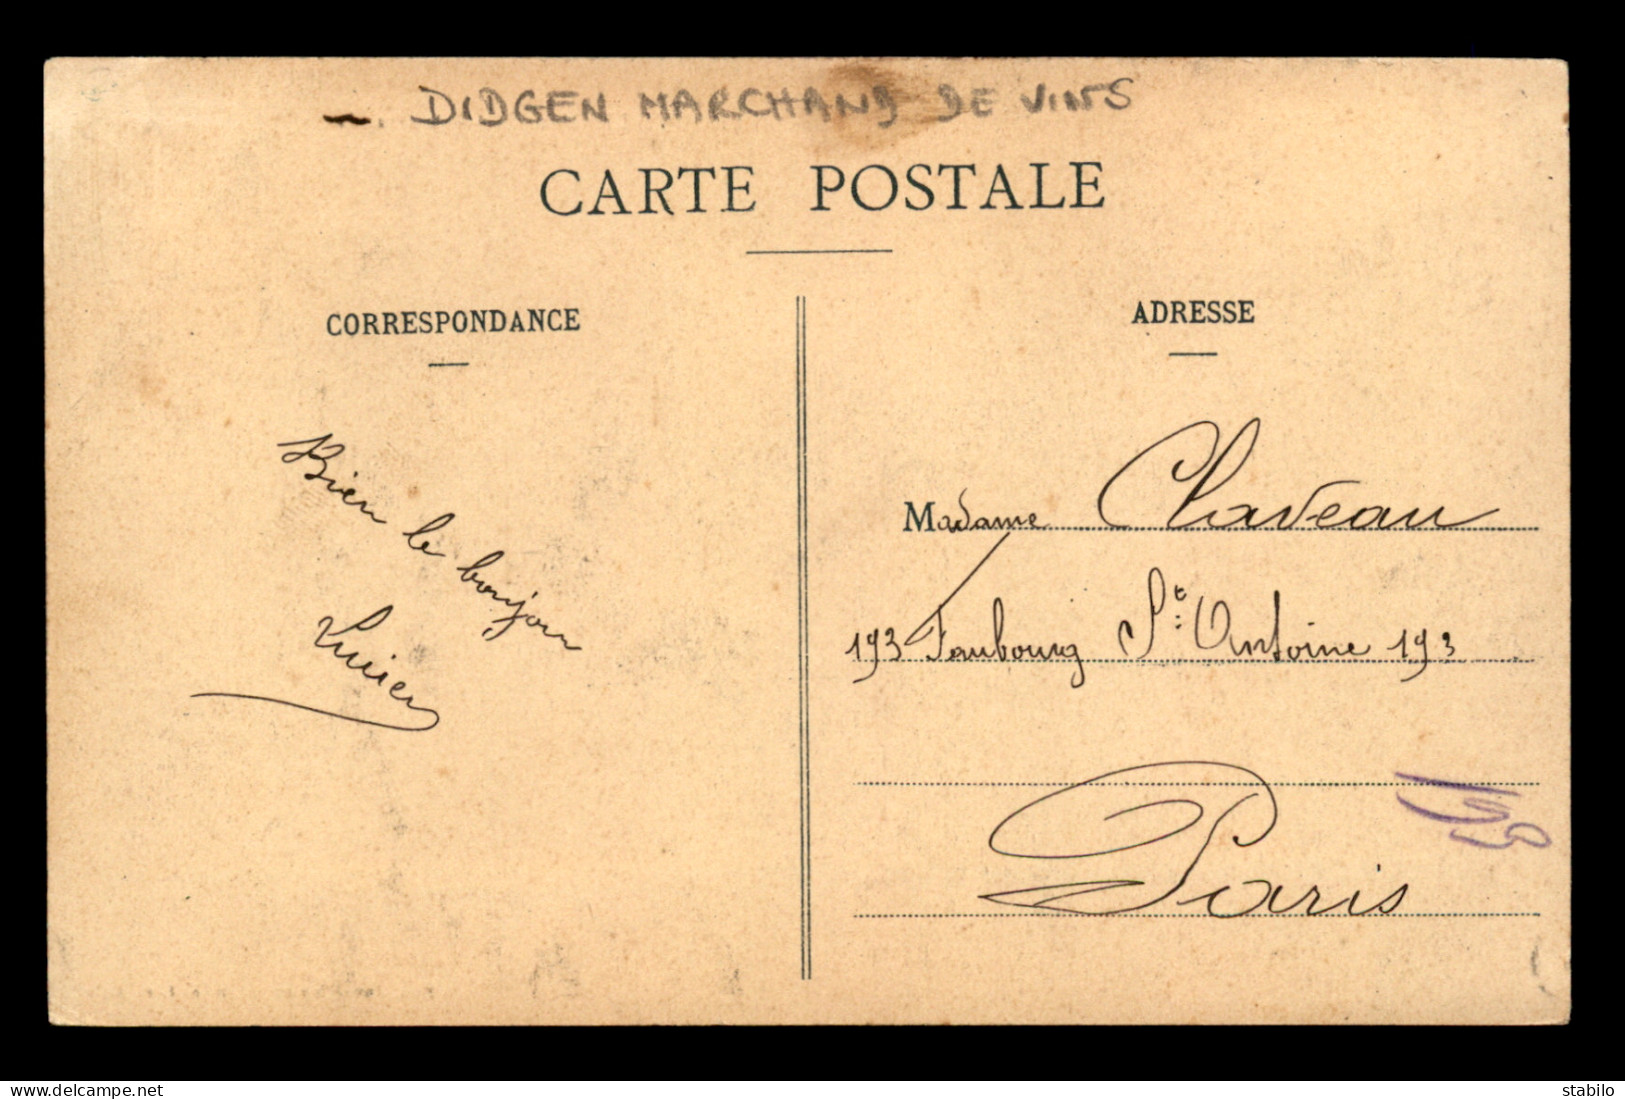 DIDGEN MARCHAND DE VINS
CARTE POSTALE
CORRESPONDANCE
Bien le bonjour
Lucien
ADRESSE
Madame Claveau
193 Faubourg St Antoine 193
Paris
delcampe.net
stabilo